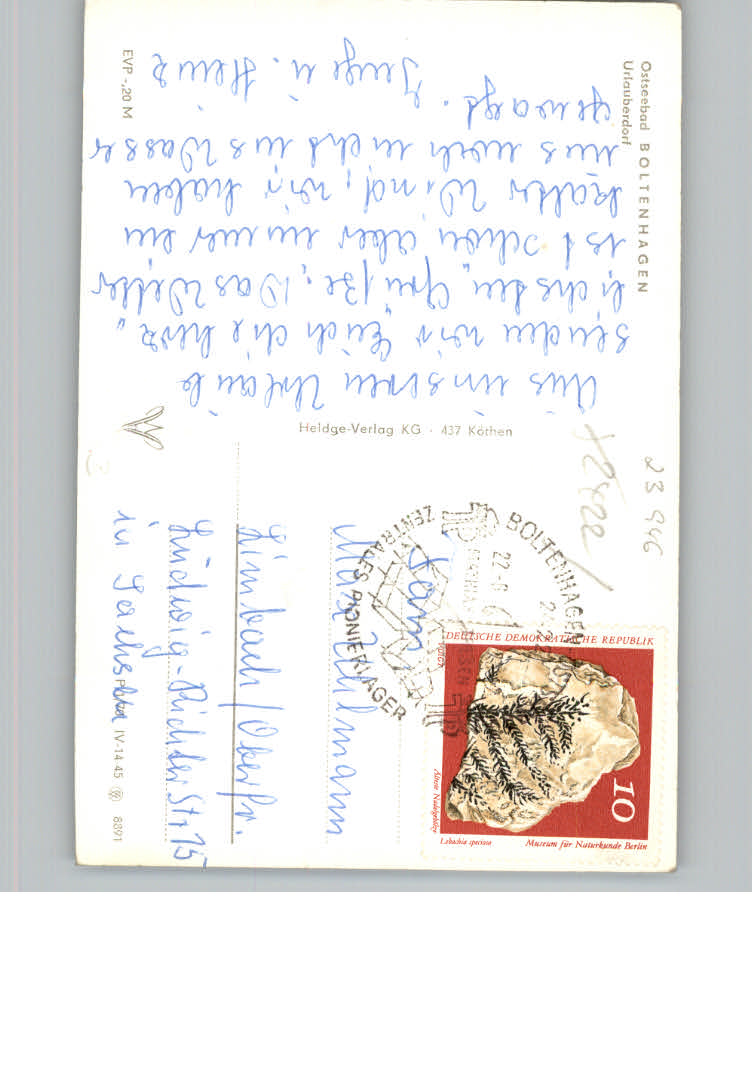 Ostseebad BOLTENHAGEN
Urlauberdorf
Aus unseren Urlaub
senden wir Euch die herz„
lichsten Grüße, Das Wetter
ist schön aber immer ein
kalter Wind, wir haben
uns noch nicht ins Wasser
gewagt. Inge u. Heinz
EVP -,20 M
Heldge-Verlag KG · 437 Köthen
23 946
Fam.
Max
Limbach / Oberfr.
Ludwig-Richter Str 15
in Sachsen
IV-14-45 8891
BOLTENHAGEN
ZENTRALES PIONIERLAGER
DEUTSCHE DEMOKRATISCHE REPUBLIK
10
Lebachia speciosa
Museum für Naturkunde Berlin